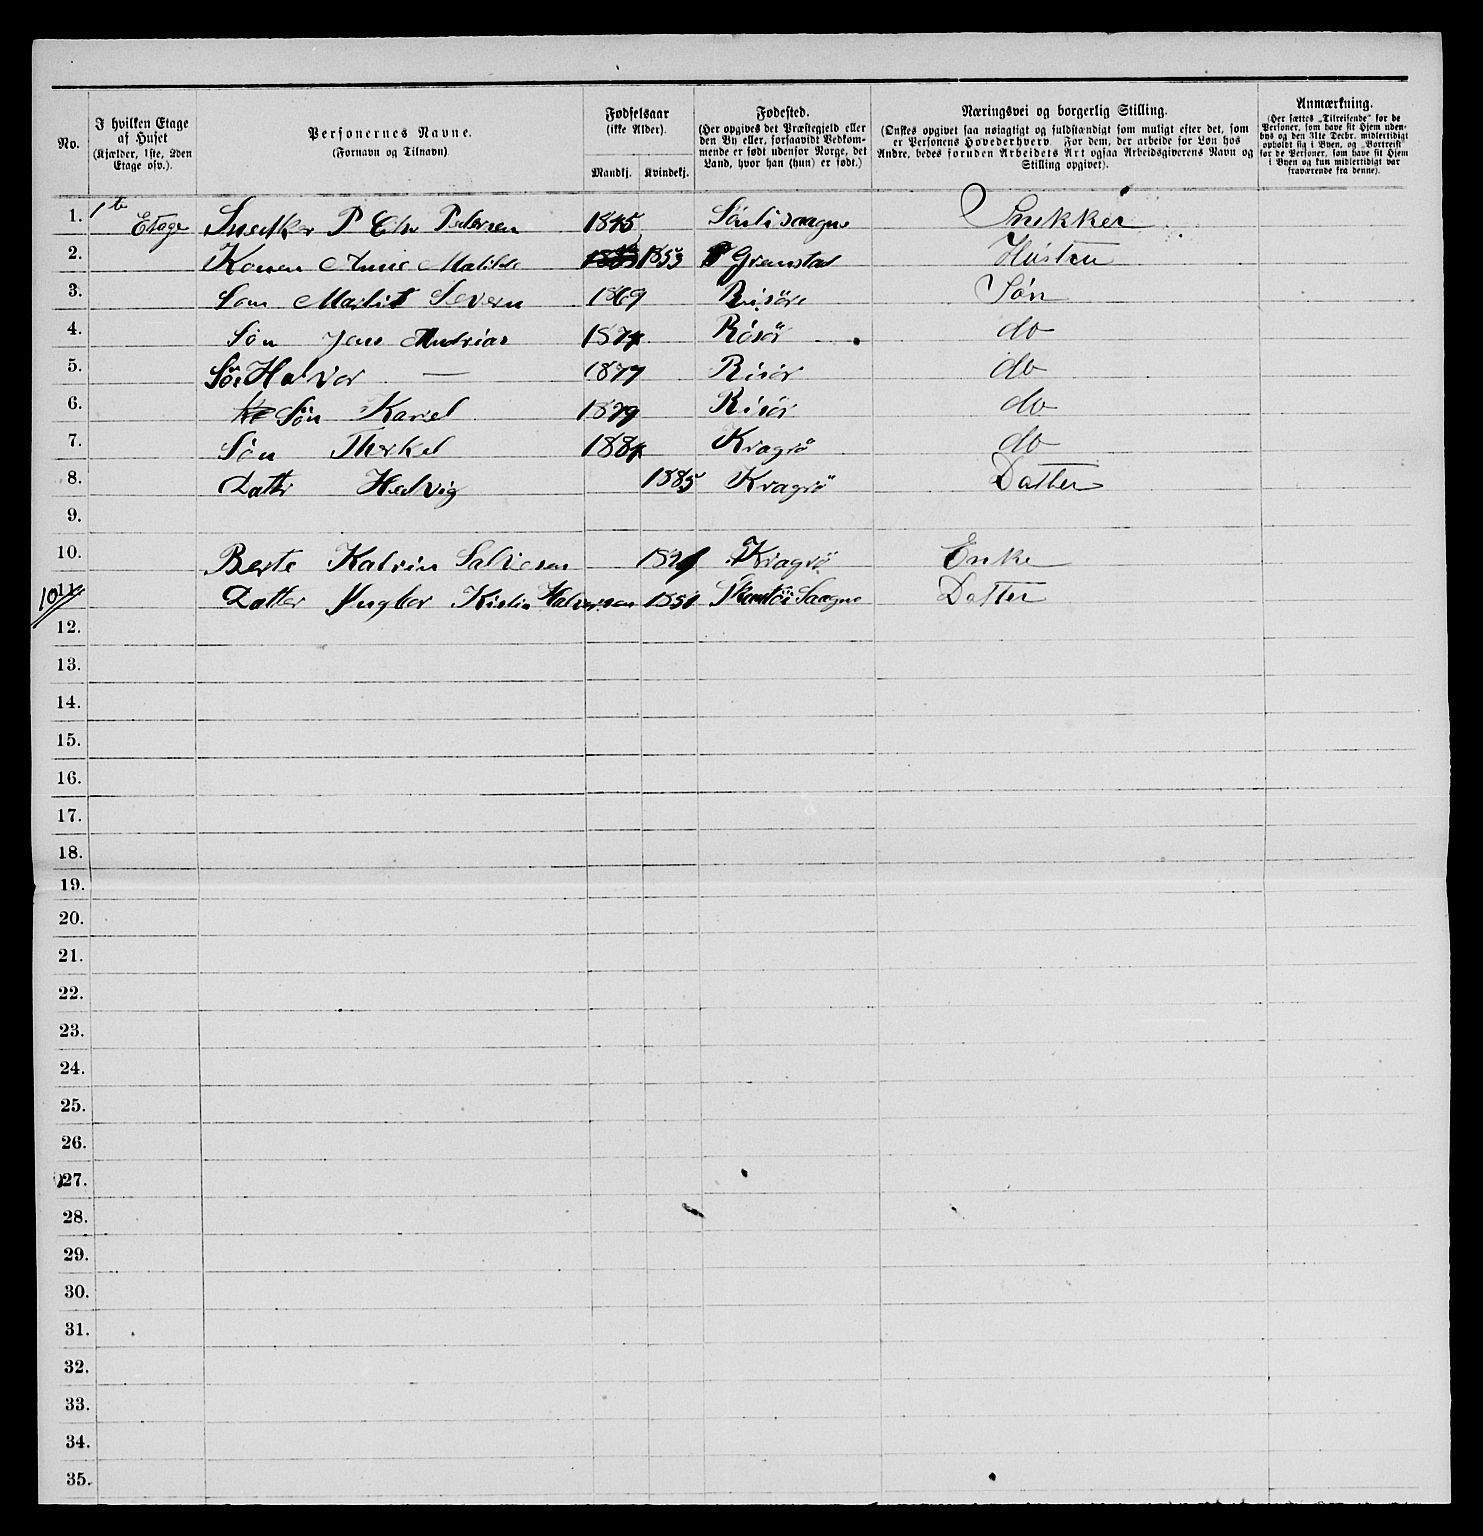 No.
I hvilken Etage af Huset (Kjælder, 1ste, 2den Etage osv.).
Personernes Navne. (Fornavn og Tilnavn)
Fødselsaar (ikke Alder). Mandkj. Kvindekj.
Fødested. (Her opgives det Præstegjeld eller den By eller, forsaavidt Vedkommende er født udenfor Norge, det Land, hvor han (hun) er født.)
Næringsvei og borgerlig Stilling. (Ønskes opgivet saa nøiagtigt og fuldstændigt som muligt efter det, som er Personens Hovederhverv. For dem, der arbeide for Løn hos Andre, bedes foruden Arbeidets Art ogsaa Arbeidsgiverens Navn og Stilling opgivet).
Anmærkning. (Her sættes „Tilreisende" for de Personer, som have sit Hjem udenbys og den 31te Decbr. midlertidigt opholdt sig i Byen, og „Bortreist" for de Personer, som have sit Hjem i Byen og kun midlertidigt var fraværende fra denne).
1. 1te Etage Snedker P Chr Pedersen 1845 Snekker
2. Konen Anne Matilde 1853 Grimstad Hustru
3. Søn Severin 1869 Risöre Søn
4. Søn Jens Andrias 1874 Risör do
5. Søn Halvor — 1877 Risör do
6. Søn Karel 1879 Risör do
7. Søn Therkel 1884 Kragrö do
8. Datter Hedvig 1885 Kragrö Datter
9.
10. Berte Katrin Salvesen Kragrö Enke
Datter Kristin Halvorsen 1850 Saagne Datter
12.
13.
14.
15.
16.
17.
18.
19.
20.
21.
22.
23.
24.
25.
26.
27.
28.
29.
30.
31.
32.
33.
34.
35.